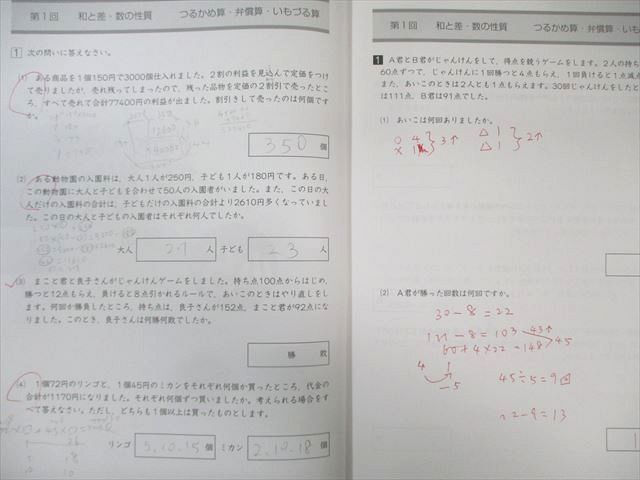 第1回 和と差・数の性質 つるかめ算・弁償算・いもづる算
1 次の問いに答えなさい。
(1) ある商品を1個150円で3000個仕入れました。2割の利益を見込んで定価をつけ
て売りましたが、売れ残ってしまったので、残った品物を定価の2割引で売ったとこ
ろ、すべて売れて合計77400円の利益が出ました。割引きして売ったのは何個です
か。
350 個
(2) ある動物園の入園料は、大人1人が250円、子ども1人が180円です。ある日、
この動物園に大人と子どもを合わせて50人の入園者がいました。また、この日の大
人だけの入園料の合計は、子どもだけの入園料の合計より2610円多くなっていまし
た。この日の大人と子どもの入園者はそれぞれ何人でしたか。
大人 27 人 子ども 23 人
(3) まこと君と良子さんがじゃんけんゲームをしました。持ち点100点からはじめ、
勝つと12点もらえ、負けると8点引かれるルールで、あいこのときはやり直しをし
ます。何回か勝負したところ、持ち点は、良子さんが152点、まこと君が92点にな
りました。このとき、良子さんは何勝何敗でしたか。
勝 敗
(4) 1個72円のリンゴと、1個45円のミカンをそれぞれ何個か買ったところ、代金の
合計が1170円になりました。それぞれ何個ずつ買いましたか。考えられる場合をす
べて答えなさい。ただし、どちらも1個以上は買ったものとします。
リンゴ 5.10.15 個 ミカン 2.10.18 個
第1回 和と差・数の性質 つるかめ算・弁償算・いも
1 A君とB君がじゃんけんをして、得点を競うゲームをします。2人の持ち
60点ずつで、じゃんけんに1回勝つと4点もらえ、1回負けると1点減
また、あいこのときは2人とも1点もらえます。30回じゃんけんをしたと
は111点、B君は91点でした。
(1) あいこは何回ありましたか。
○ 4 } 3↑ △ 1 } 2↑
× 1 △ 1
(2) A君が勝った回数は何回ですか。
30-8=22
111-8=103
60+4×22=148
43↑
45
4
-5
45÷5=9
22-9=13